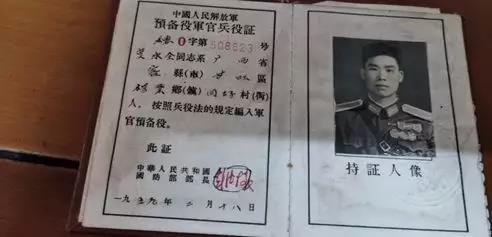 中國人民解放軍
預备役軍官兵役証
0字第508623号
永全同志系广西省
縣(市) 區
鄉(鎮) 村(街)
人，按照兵役法的規定編入軍
官預备役。
此証
中華人民共和國
國防部部長
一九五九年二月十八日
持証人像